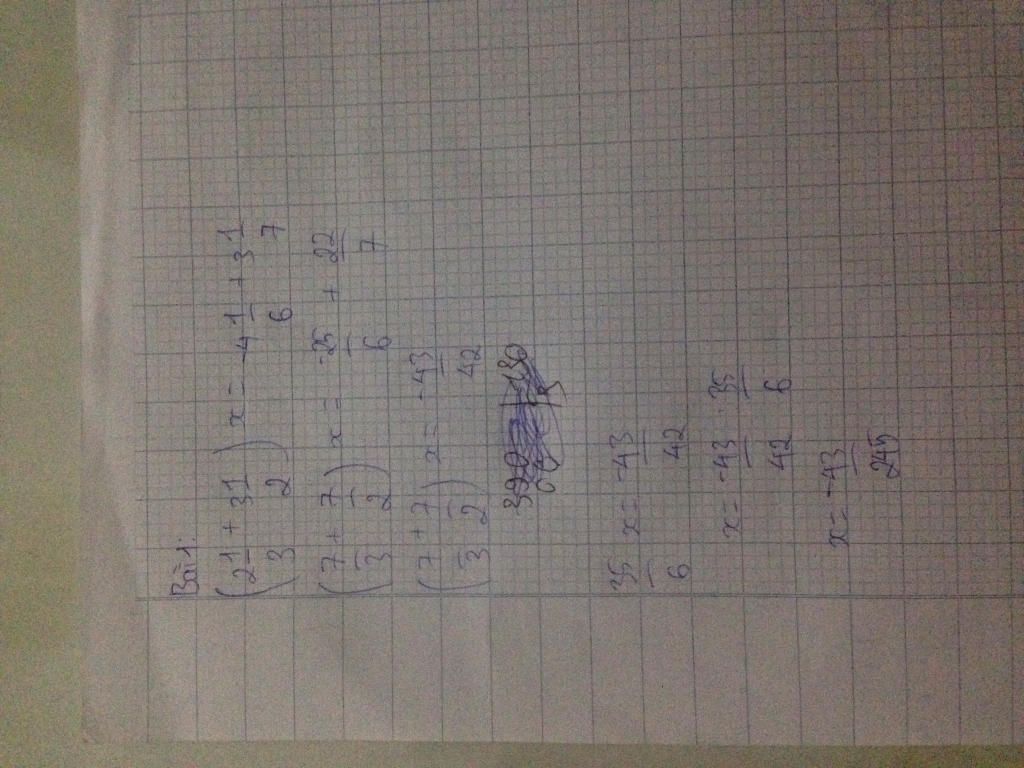 Bài 1:
(2 1/3 + 3 1/2) x = -4 1/6 + 3 1/7
(7/3 + 7/2) x = -25/6 + 22/7
(7/3 + 7/2) x = -43/42
35/6 x = -43/42
x = -43/42 : 35/6
x = -43/245